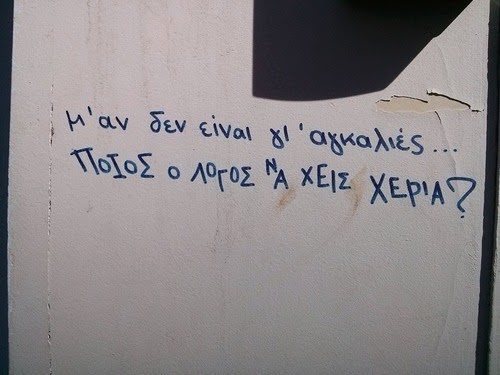 μ'αν δεν είναι γι 'αγκαλιές...
ΠΟΙΟΣ Ο ΛΟΓΟΣ ΝΑ ΧΕΙΣ ΧΕΡΙΑ?